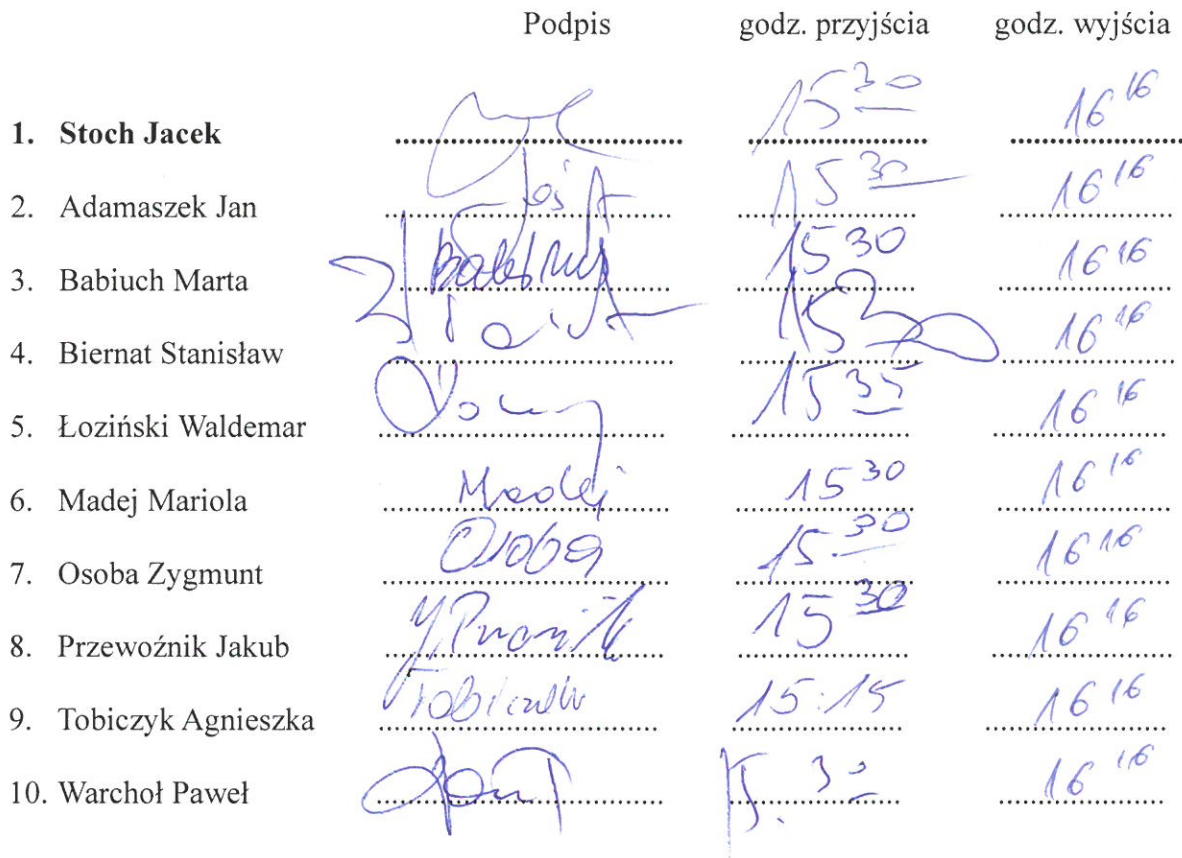 Podpis godz. przyjścia godz. wyjścia
1. Stoch Jacek 15 30 16 16
2. Adamaszek Jan 15 30 16 16
3. Babiuch Marta 15 30 16 16
4. Biernat Stanisław 15 30 16 16
5. Łoziński Waldemar 15 35 16 16
6. Madej Mariola Madej 15 30 16 16
7. Osoba Zygmunt Osoba 15 30 16 16
8. Przewoźnik Jakub 15 30 16 16
9. Tobiczyk Agnieszka 15:15 16 16
10. Warchoł Paweł 15. 30 16 16